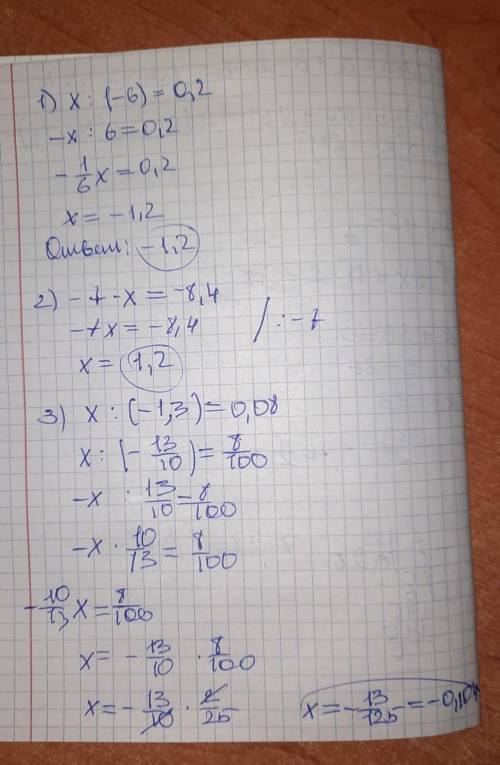 1) x : (-6) = 0,2
-x : 6 = 0,2
-1/6 x = 0,2
x = -1,2
Ответ: -1,2
2) -7 · x = -8,4
-7x = -8,4 / : -7
x = 1,2
3) x : (-1,3) = 0,08
x : (-13/10) = 8/100
-x : 13/10 = 8/100
-x · 10/13 = 8/100
-10/13 x = 8/100
x = -13/10 · 8/100
x = -13/10 · 2/25
x = -13/125 = -0,104